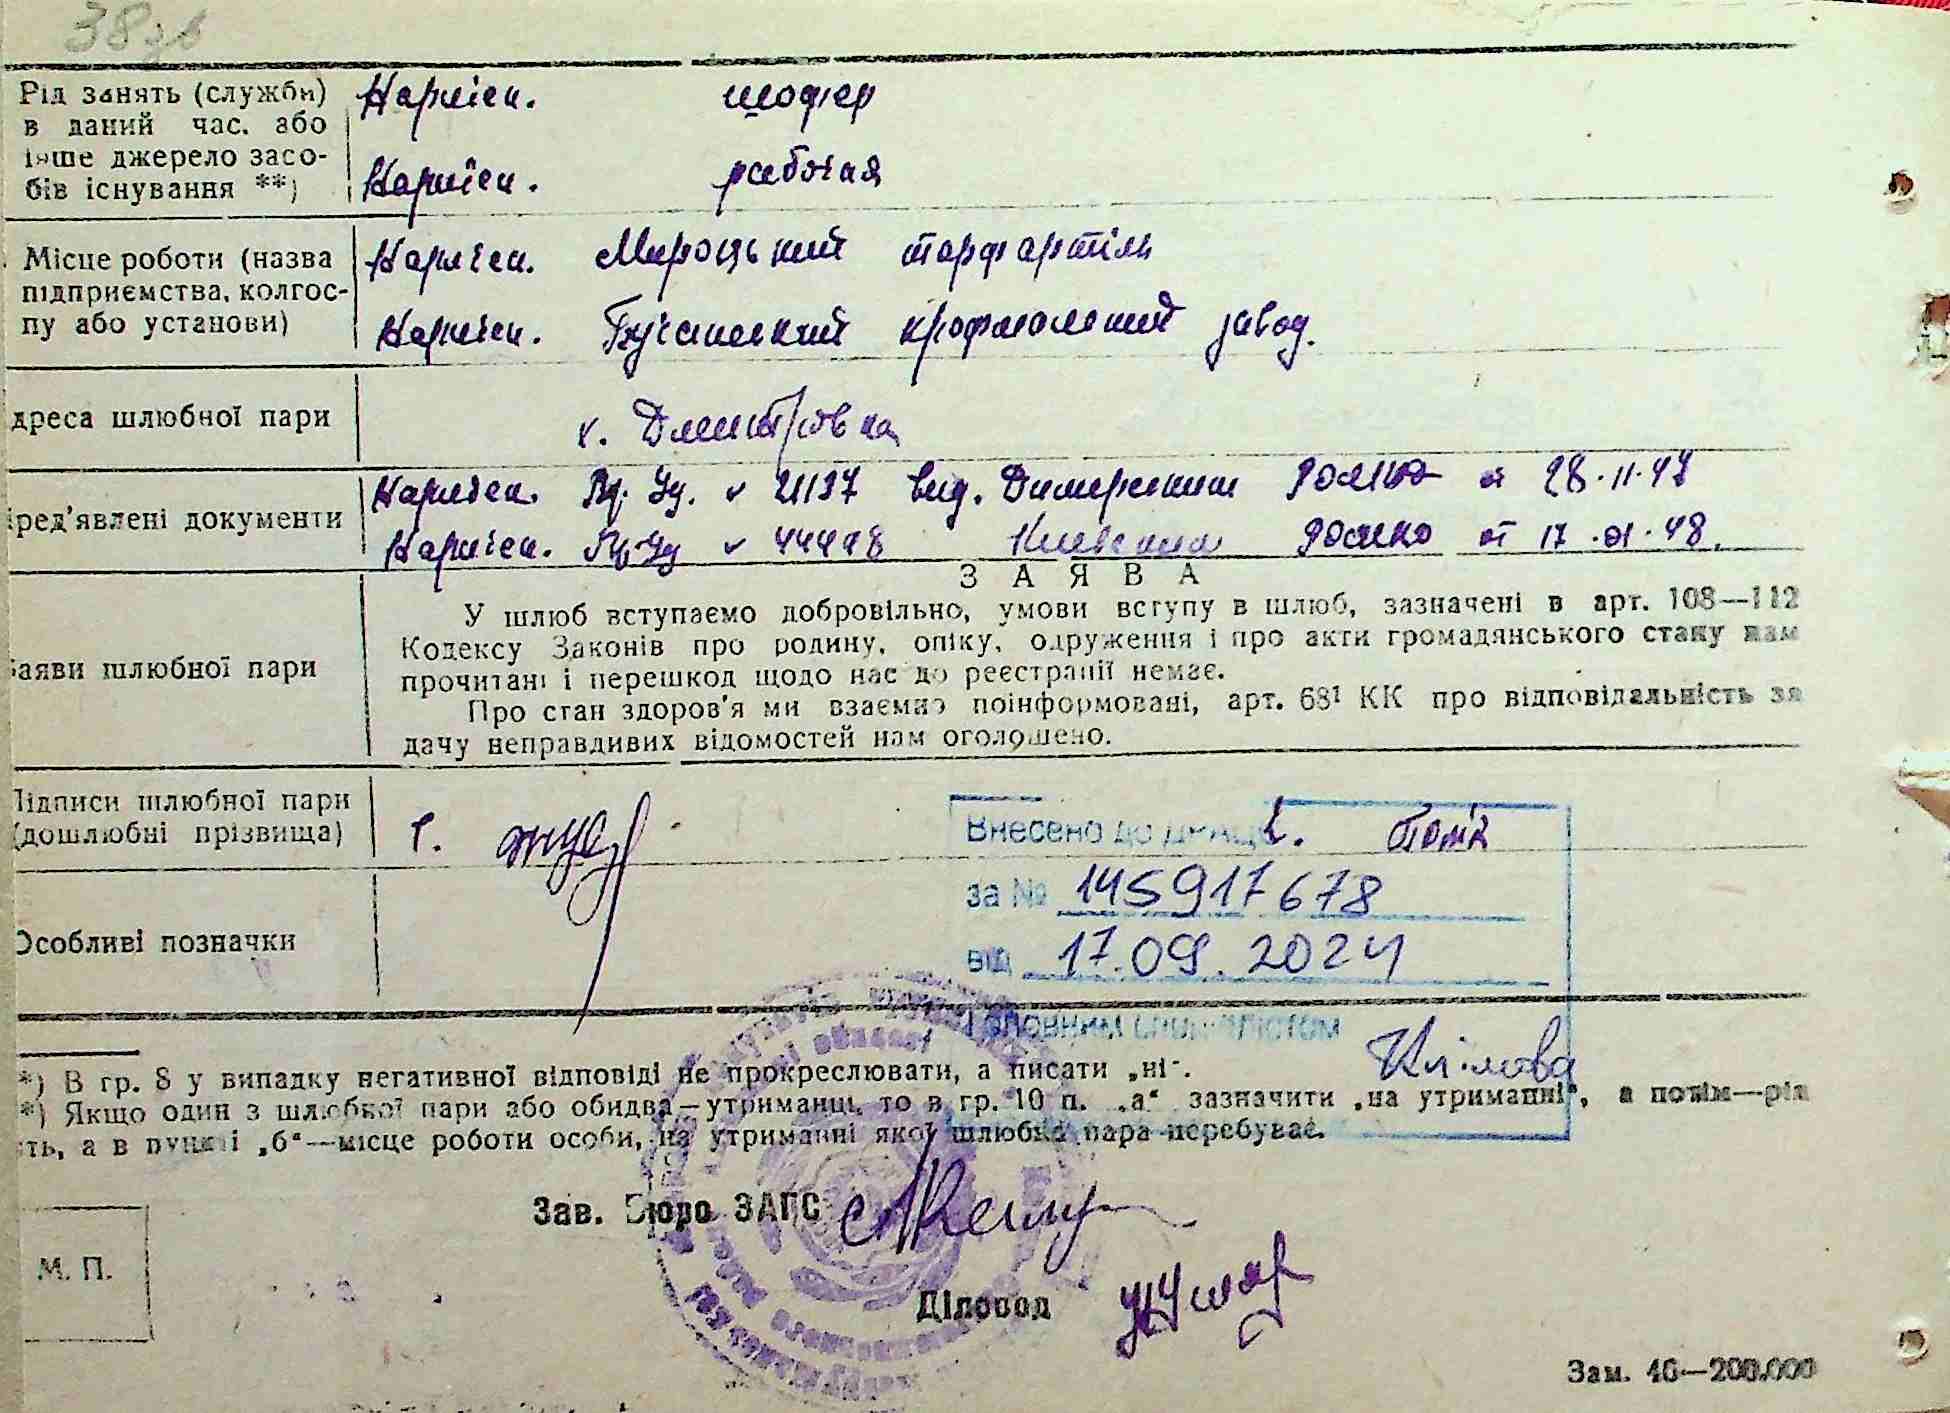 38зв
Рід занять (служби) в даний час. або інше джерело засобів існування **)
Наречен. шофер
Наречен. рабочая
Місце роботи (назва підприємства, колгоспу або установи)
Наречен. Мироцький торфартіль
Наречен. Бучанський крофмальний завод.
дреса шлюбної пари
х. Дмитрівка
ред'явлені документи
Наречен. 21137 вид. Димерским РОМВД от 28.11.47
Наречен. 44498 Киевским от 17.01.48.
ЗАЯВА
аяви шлюбної пари
У шлюб вступаємо добровільно, умови вступу в шлюб, зазначені в арт. 108—112
Кодексу Законів про родину, опіку, одруження і про акти громадянського стану нам
прочитані і перешкод щодо нас до реєстрації немає.
Про стан здоров'я ми взаємно поінформовані, арт. 68¹ КК про відповідальність за
дачу неправдивих відомостей нам оголошено.
Підписи шлюбної пари (дошлюбні прізвища)
1.
Внесено до ДРАЦС
за № 145917678
від 17.09.2024
Головним спеціалістом
Клімова
Особливі позначки
*) В гр. 8 у випадку негативної відповіді не прокреслювати, а писати „ні".
*) Якщо один з шлюбної пари або обидва—утриманці, то в гр. 10 п. „а" зазначити „на утриманні", а потім—рід
ть, а в пункті „б"—місце роботи особи, на утриманні якої шлюбна пара перебуває.
Зав. Бюро ЗАГС
М. П.
Діловод
Зам. 46—200.000